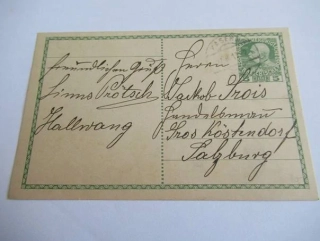 freundlichen Gruß
Protsch
Hallwang
Herrn
Jackob Frois
Handelsmann
Gros Köstendorf
Salzburg